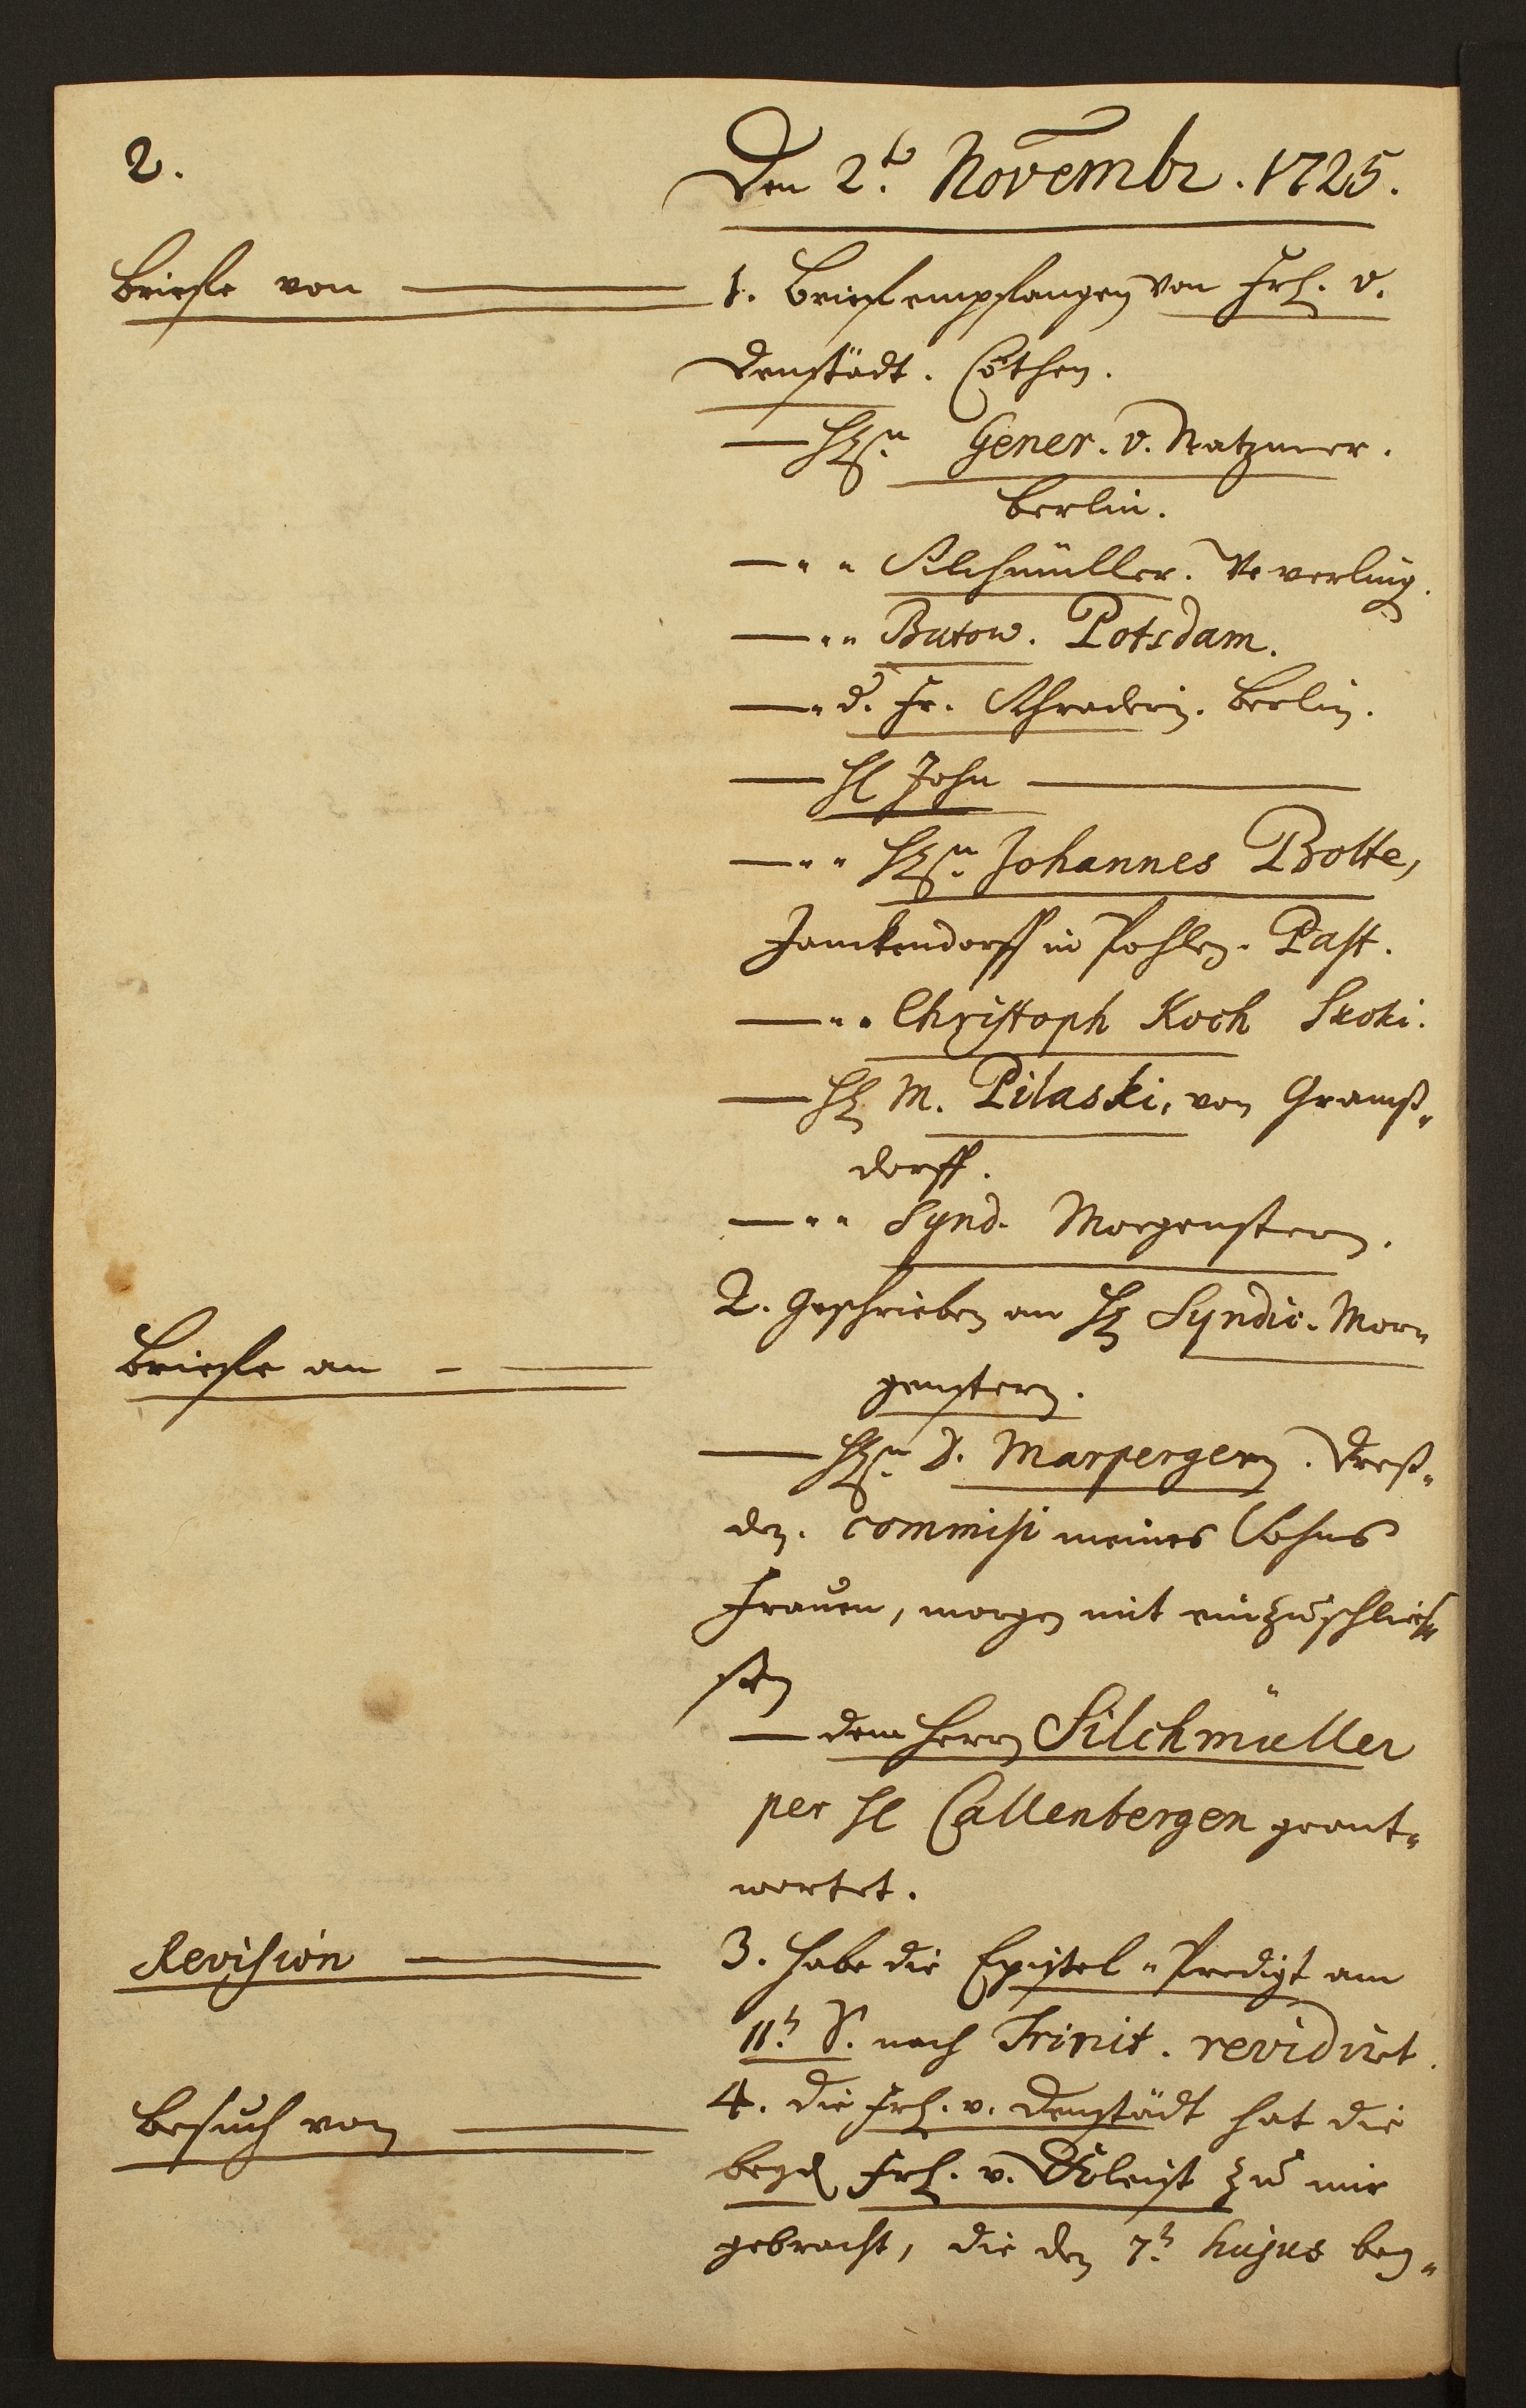 2.
Den 2.t Novembr. 1725.
Brieffe von
1. Brief empfangen von Frl. v.
Denstädt. Cöthen.
— HE.n Gener. v. Natzmer.
Berlin.
— " " Silchmüller. Veverling.
— " " Butow. Potsdam.
— " d. Fr. Schraderin. Berlin.
— H John
— " " HE.n Johannes Botte,
Janckendorff in Pohlen. Past.
— " " Christoph Koch Skoki.
— HE M. Pilaski, von Gramß"
dorff.
— " " Synd. Morgenstern.
2. Geschrieben an HE Syndic. Mor"
genstern.
Brieffe an
— HE.n D. Marpergern. Dreß"
den. commisi meines Sohns
Frauen, morgen mit einzuschlies"
sen
— dem Herrn Silchmüller
per H Callenbergen geant"
wortet.
Revision
3. Habe die Epistel "Predigt am
11.h S. nach Trinit. revidirt.
Besuch von
4. die Frl. v. Denstädt hat die
beyd Frl. v. Kleist zu mir
gebracht, die den 7.h hujus bey"